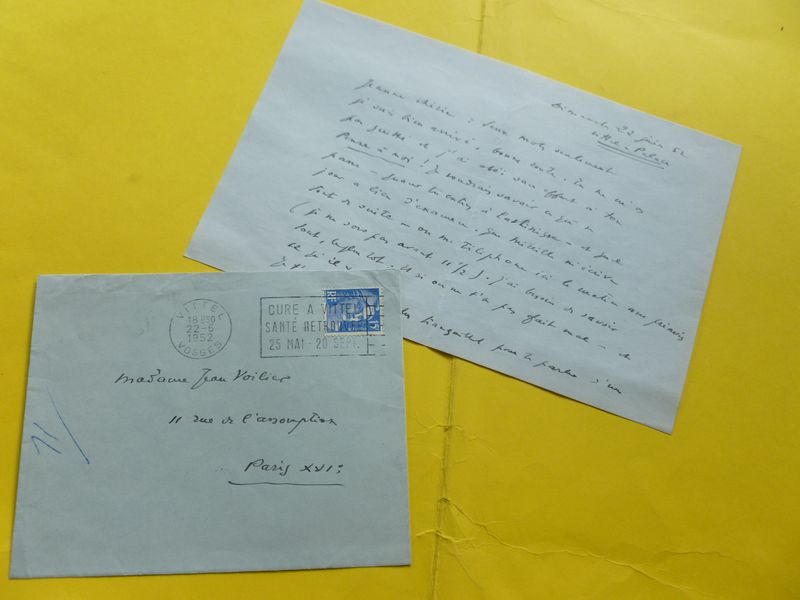 Dimanche 22 juin 52
Vittel-Palace
Jeanne chérie : deux mots seulement
je suis bien arrivé, bonne route. Tu ne m'as
pas quitté et j'ai obéi sans effort à ton
Pense à moi ! Je voudrais savoir ce qui se
passe - quand tu entres à - et que
jour a lieu l'examen. Que Mireille m'écrive
tout de suite - ou me téléphone ici le matin au préavis
(je ne sors pas avant 11h 1/2). J'ai besoin de savoir
tout, . Et si on ne t'a pas fait mal - et
ce si
tranquille pour la d'un
VITTEL
18H30
22-6
1952
VOSGES
CURE A VITTEL
SANTÉ RETROUVÉE
25 MAI - 20 SEPT.
RF
15F
Madame Jean Voilier
11 rue de l'assomption
Paris XVIe
11/